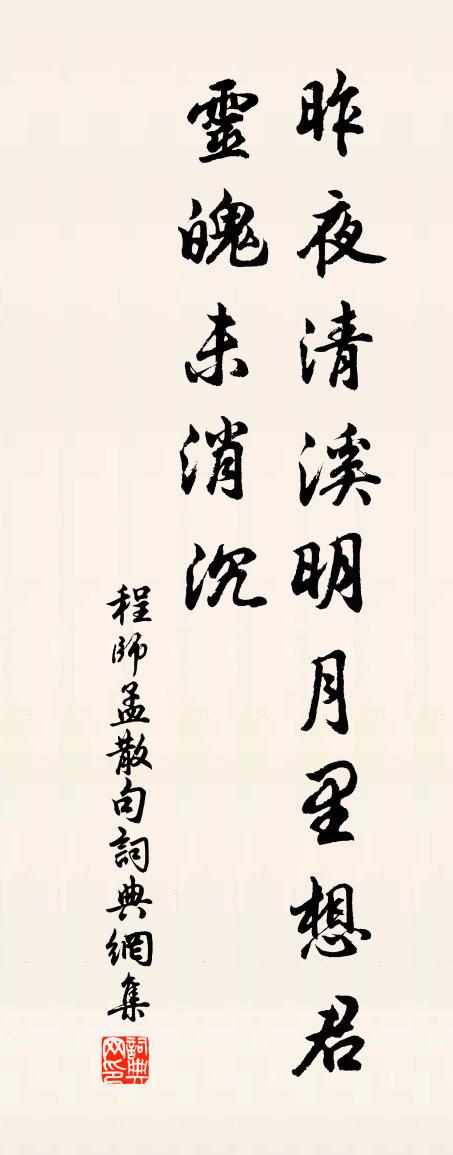 昨夜清溪明月里想君
靈魄未消沉
程師孟散句詞典網集
詞典网印